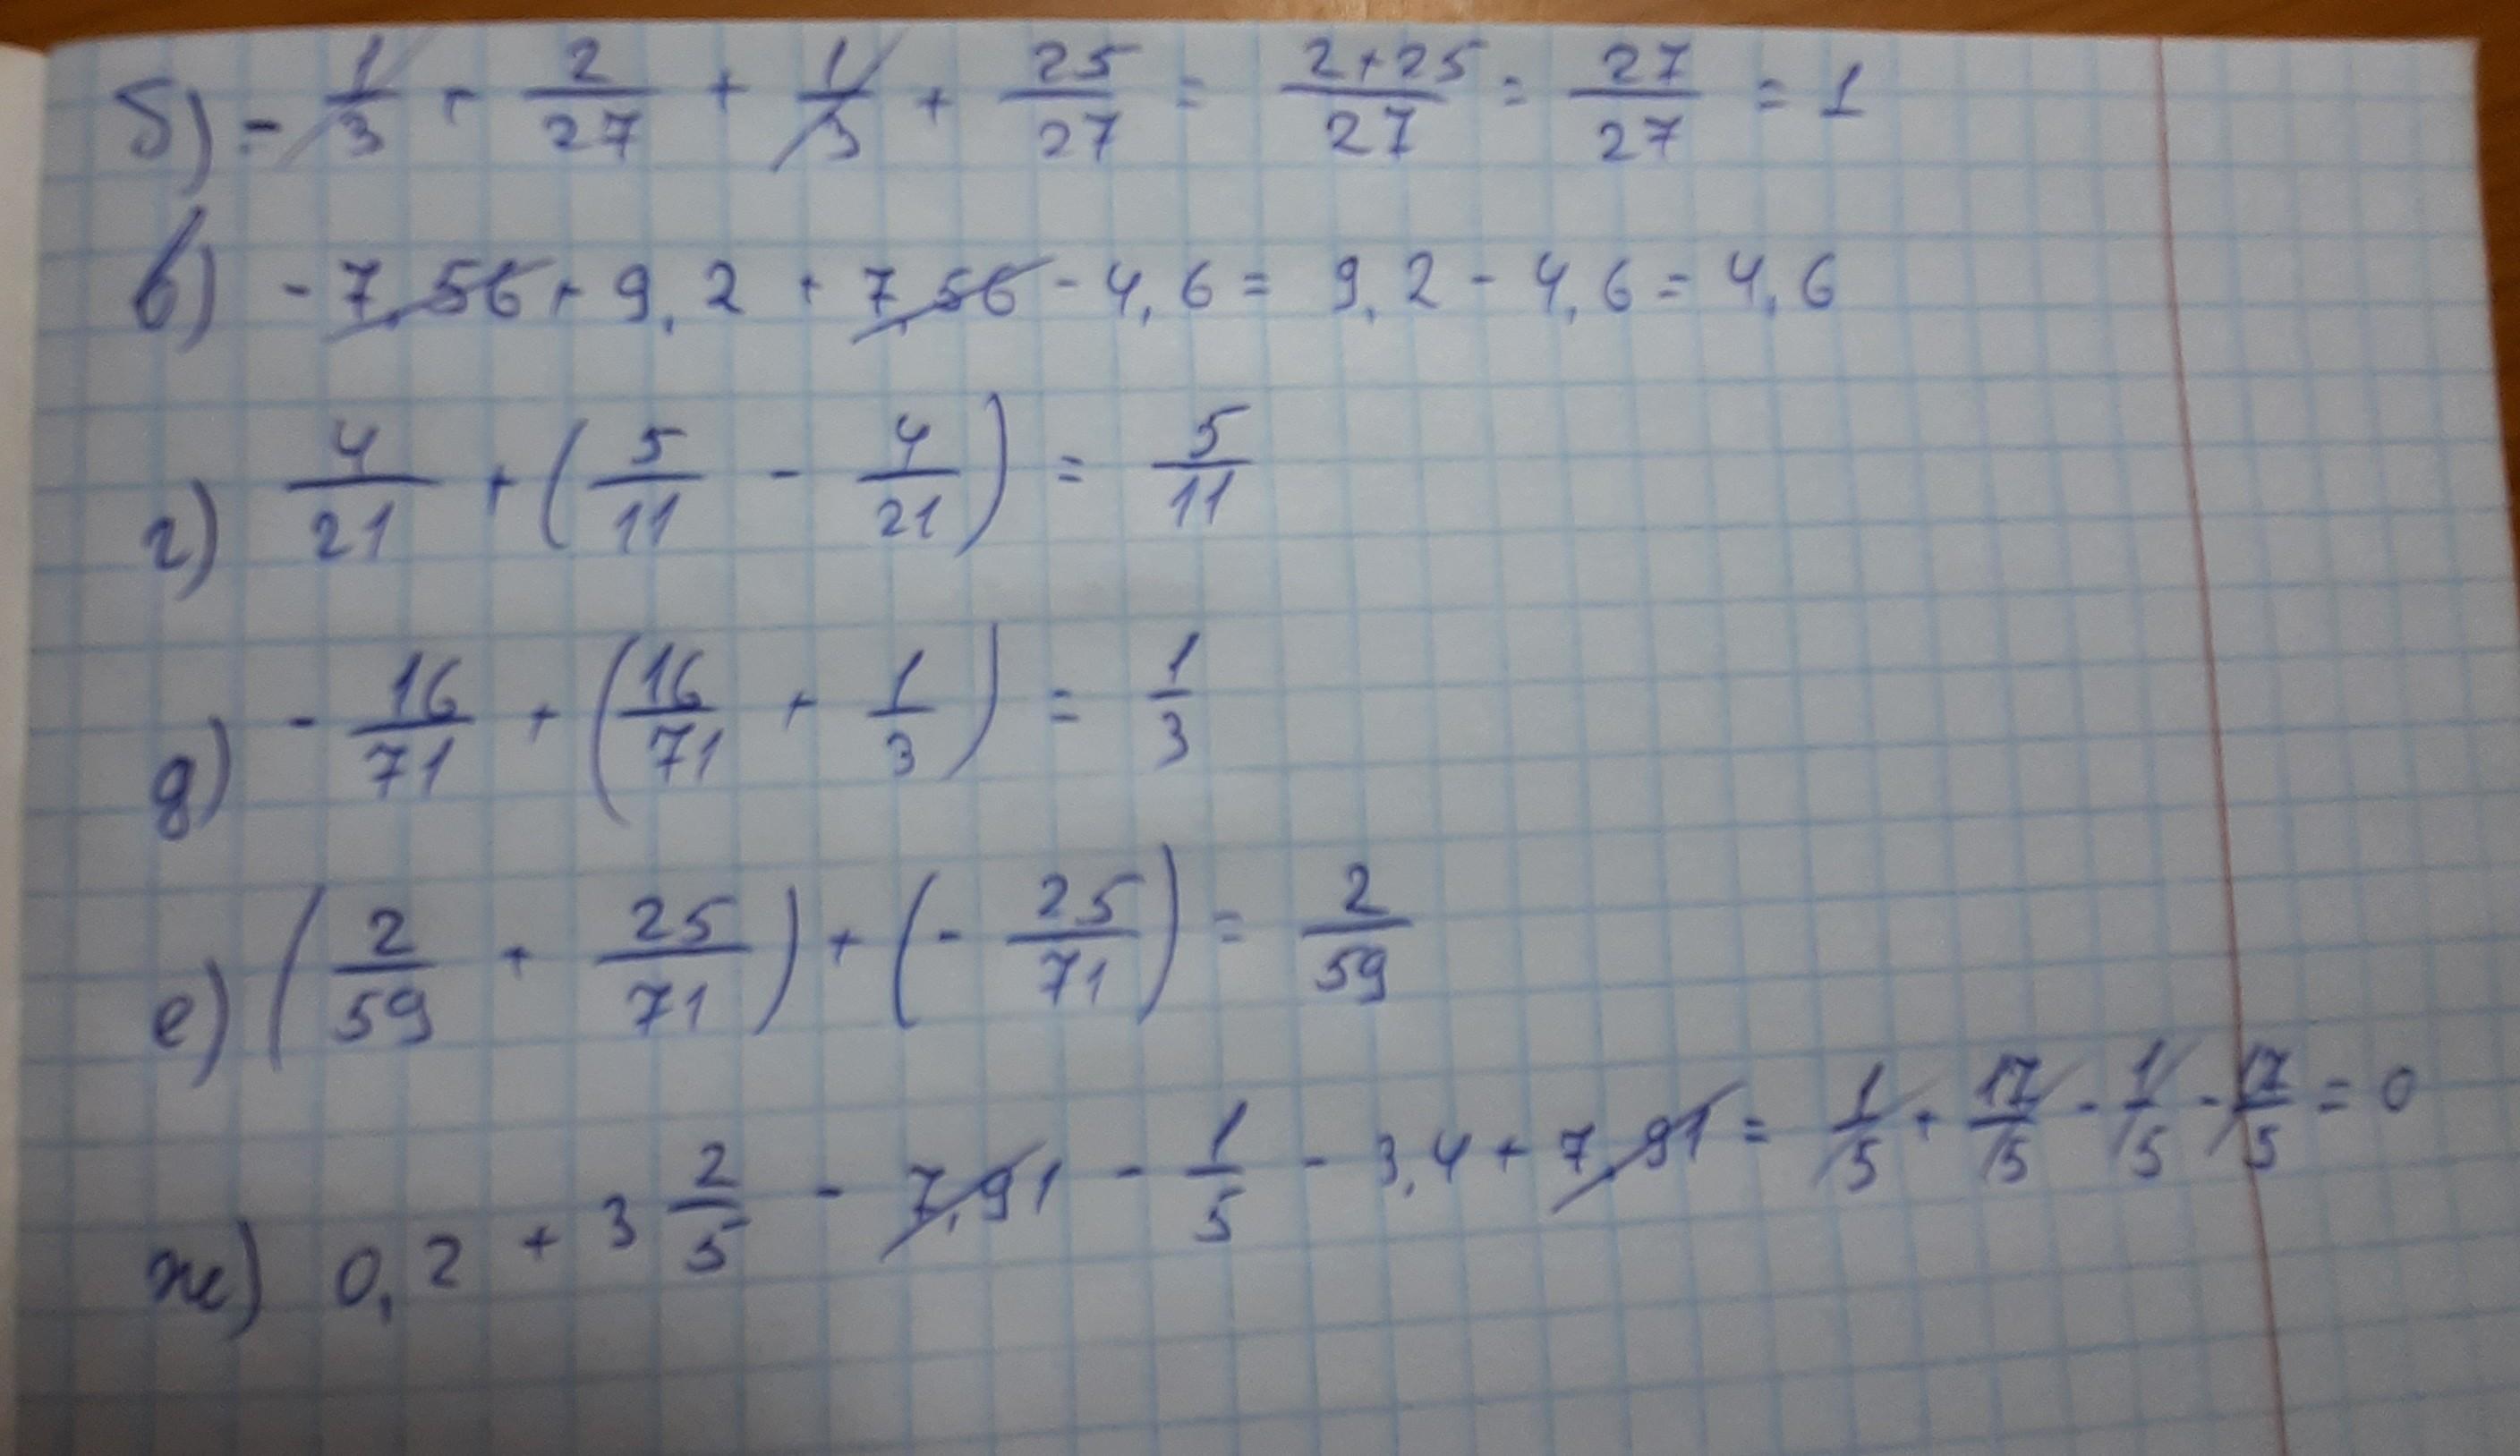 б) - 1/3 + 2/27 + 1/3 + 25/27 = (2+25)/27 = 27/27 = 1
в) - 7,56 + 9,2 + 7,56 - 4,6 = 9,2 - 4,6 = 4,6
г) 4/21 + (5/11 - 4/21) = 5/11
д) - 16/71 + (16/71 + 1/3) = 1/3
е) (2/59 + 25/71) + (- 25/71) = 2/59
ж) 0,2 + 3 2/5 - 7,91 - 1/5 - 3,4 + 7,91 = 1/5 + 17/5 - 1/5 - 17/5 = 0